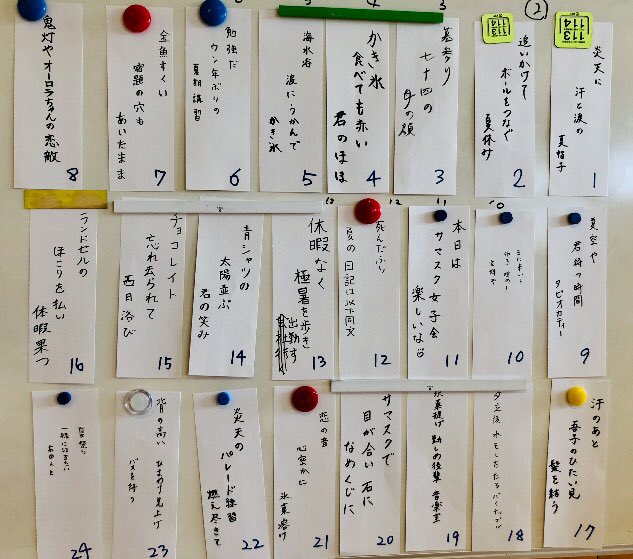 ②
113
114
113
114
炎天に
汗と涙の
夏帽子
1
追いかけて
ボールをつなぐ
夏休み
2
墓参り
七十四の
身の顔
3
かき氷
食べても赤い
君のほほ
4
海水浴
波にうかんで
かき氷
5
勉強だ
ウン年ぶりの
夏期講習
6
金魚すくい
宿題の穴も
あいたまま
7
鬼灯や
オーロラちゃんの恋敵
8
夏空や
君待つ時間
タピオカティー
9
10
本日は
サマスク女子会
楽しいな
11
死んだふり
夏の日記は以下同文
12
休暇なく
極暑を歩き
出勤す
13
青シャツの
太陽並ぶ
君の笑み
14
チョコレイト
忘れ去られて
西日浴び
15
ランドセルの
ほこりを払い
休暇果つ
16
汗のあと
吾子のひたい見
髪を結う
17
18
音楽室
19
サマスクで
目が合い石に
なめくじに
20
恋の音
心密かに
氷菓溶け
21
炎天の
パレード練習
燃え尽きて
22
背の高い
ひまわり見上げ
バスを待つ
23
夏祭り
一緒に行きたい
あの人と
24